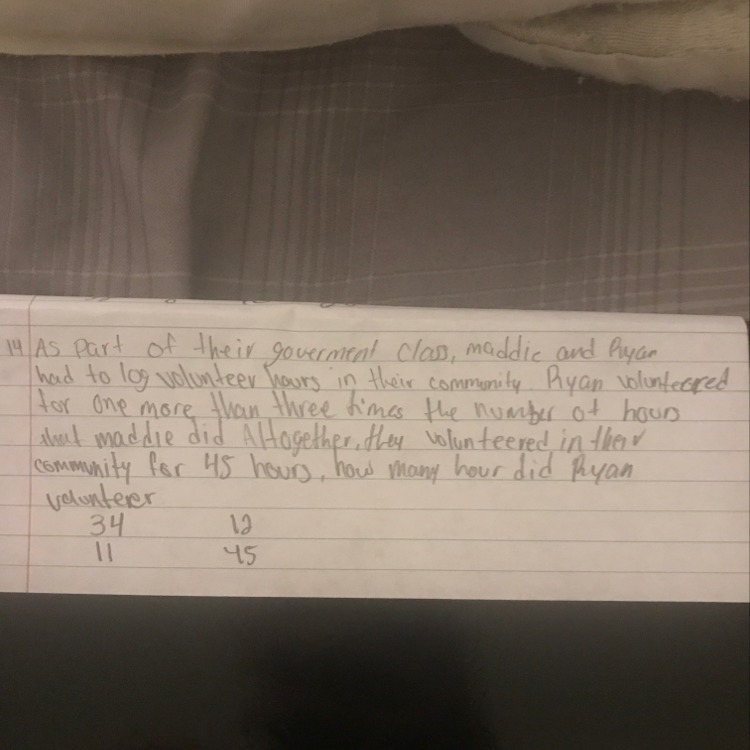 14 As part of their goverment class, maddie and Ryan
had to log volunteer hours in their community. Ryan volunteered
for one more than three times the number of hours
that maddie did Altogether, they volunteered in their
community for 45 hours, how many hour did Ryan
volunterer
34 12
11 45